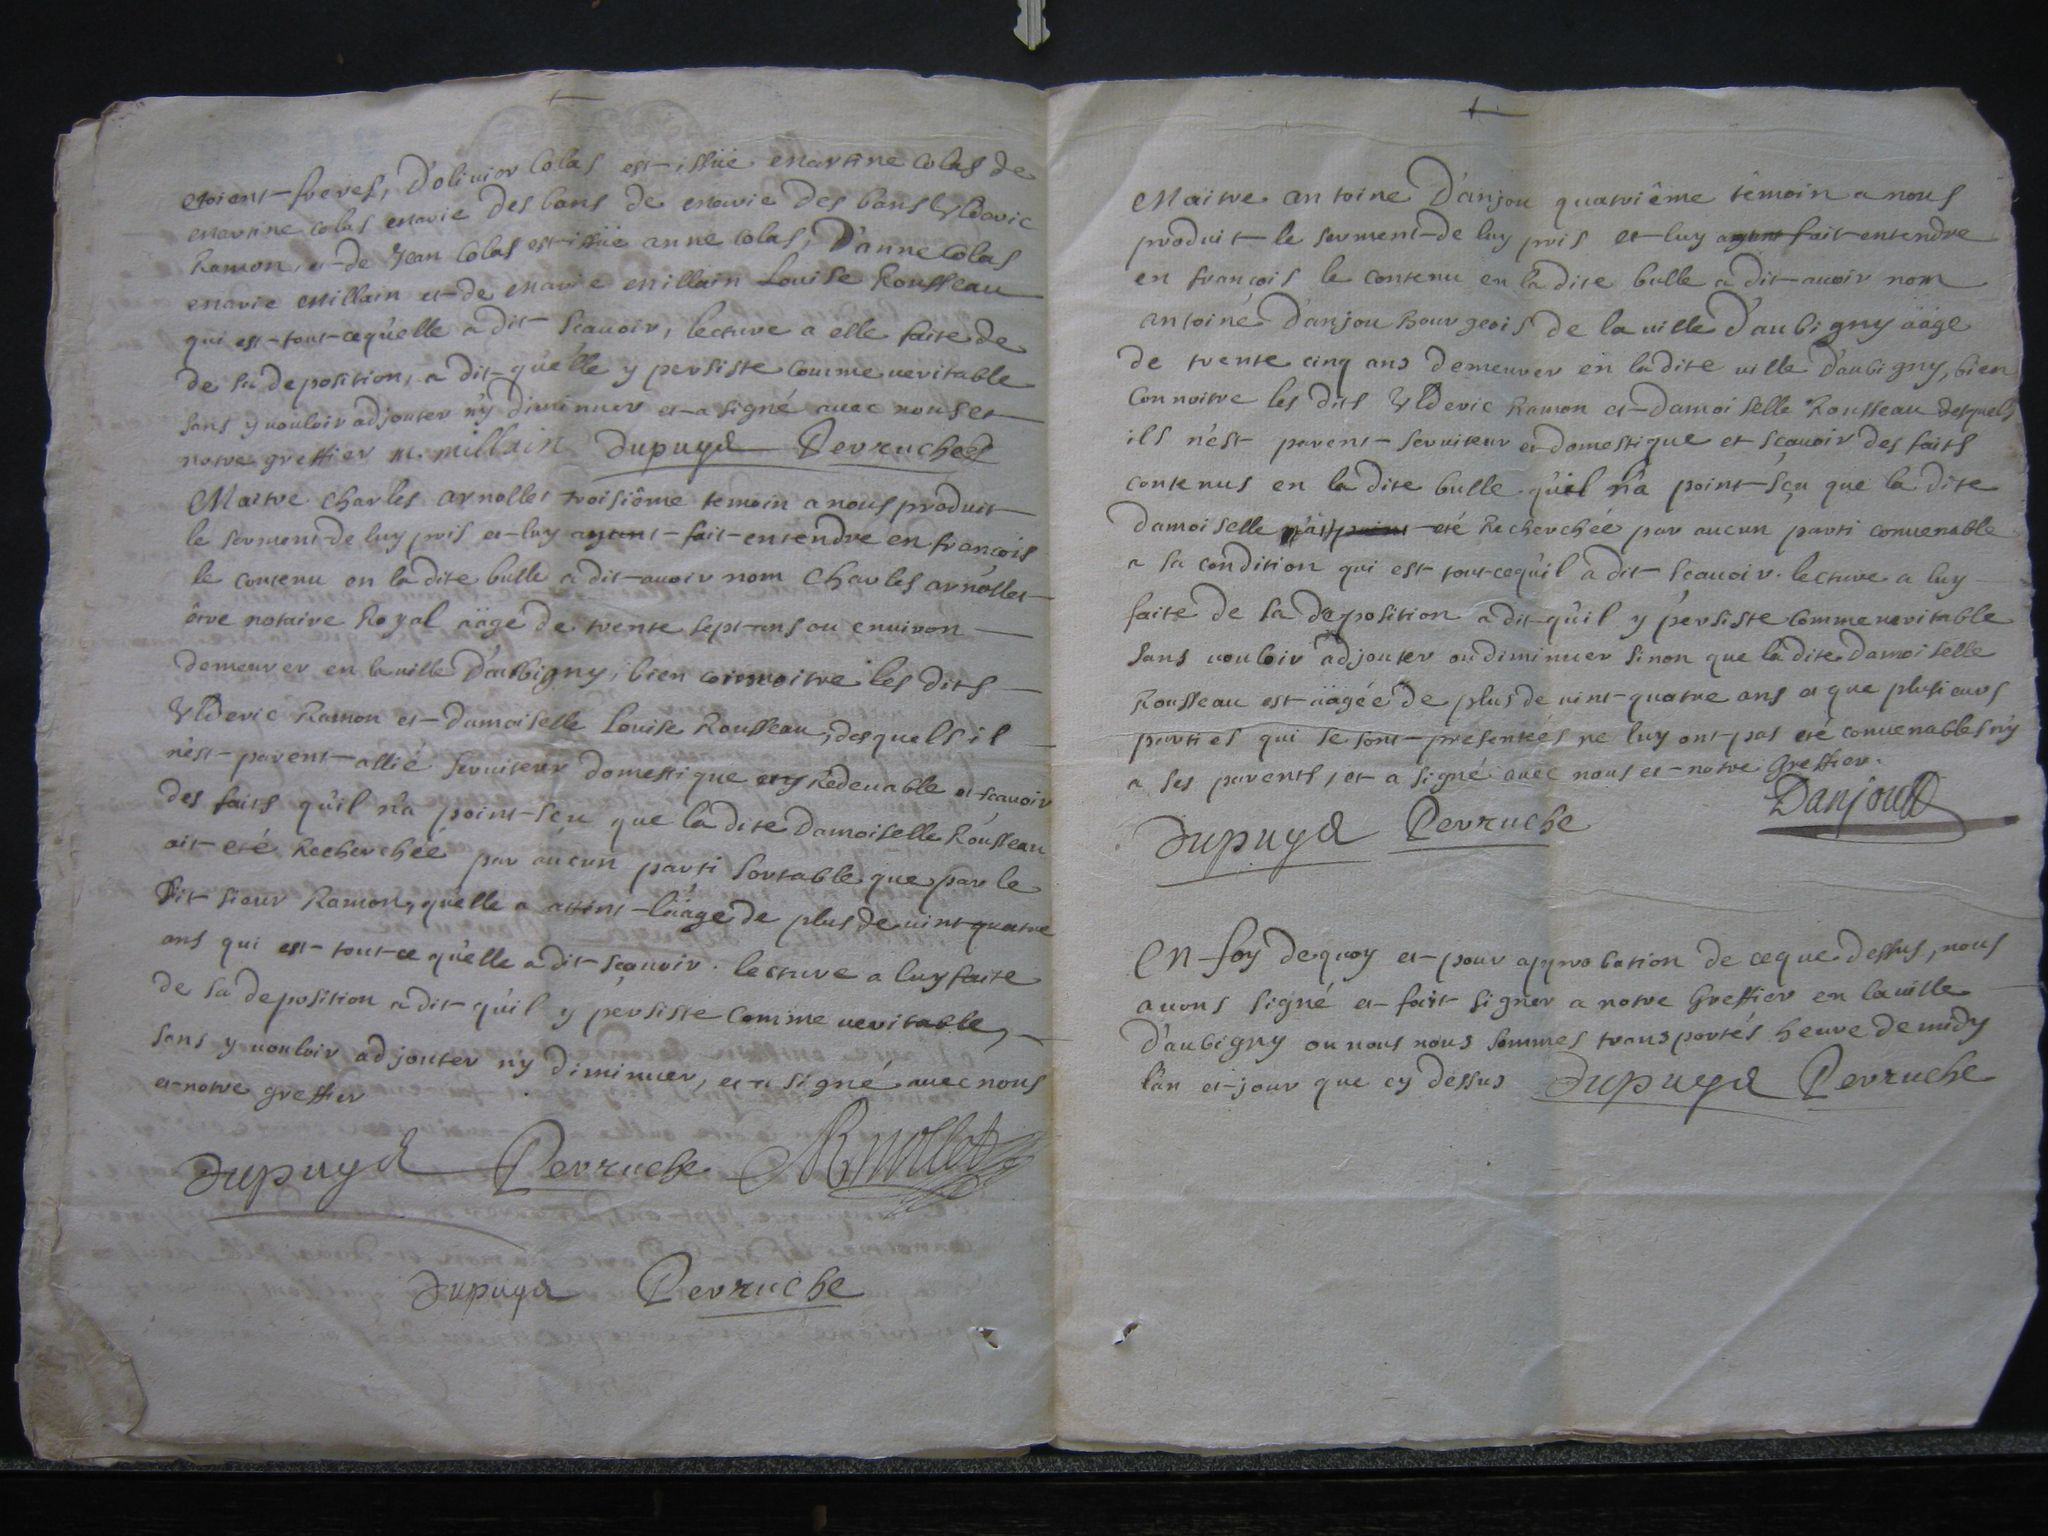 etoient freres, D'olivier Colas est issüe martine Colas de
martine Colas marie Des bans de marie Des bans Ulderic
Ramon, et de Jean Colas est issüe anne Colas, D'anne Colas
marie millain et de marie millain Louise Rousseau
qui est tout ce qu'elle a dit scavoir, lecture a elle faite de
de sa deposition, a dit qu'elle y persiste comme veritable
sans y vouloir adjouter n'y diminuer et a signé avec nous et
notre greffier M. millain Dupuy Perruche
Maitre Charles arnollet troisiême temoin a nous produit
le serment de luy pris et luy ayant fait entendre en françois
le contenu en la dite bulle a dit avoir nom Charles arnollet
être notaire Royal äagé de trente sept ans ou environ
demeurer en la ville D'aubigny, bien connoitre les dits
Ulderic Ramon et Damoiselle Louise Rousseau, desquels il
n'est parent allié serviteur domestique ny Redevable et scavoir
des faits qu'il n'a point sçu que la dite Damoiselle Rousseau
ait eté Recherchée par aucun parti sortable que par le
dit sieur Ramon, qu'elle a atteint l'äage de plus de vint quatre
ans qui est tout ce qu'elle a dit sçavoir. lecture a luy faite
de sa deposition a dit qu'il y persiste comme veritable,
sans y vouloir adjouter ny diminuer, et a signé avec nous
et notre greffier
Dupuy Perruche Arnollet
Dupuy Perruche
Maitre antoine D'anjou quatriême têmoin a nous
produit le serment de luy pris et luy ayant fait entendre
en françois le contenu en la dite bulle a dit avoir nom
antoine D'anjou Bourgeois de la ville D'aubigny äagé
de trente cinq ans demeurer en la dite ville D'aubigny, bien
Connoitre les dits Ulderic Ramon et Damoiselle Rousseau desquels
ils n'est parent serviteur et domestique et scavoir des faits
contenus en la dite bulle qu'il n'a point sçu que la dite
Damoiselle eté Recherchée par aucun parti convenable
a sa condition qui est tout ce qu'il a dit scavoir. lecture a luy
faite de sa deposition a dit qu'il y persiste comme veritable
sans vouloir adjouter ou diminuer sinon que la dite Damoiselle
Rousseau est äagée de plus de vint quatre ans et que plusieurs
parties qui se sont presentées ne luy ont pas eté convenables n'y
a ses parents, et a signé avec nous et notre Greffier.
Danjou
Dupuy Perruche
En foy de quoy et pour approbation de ce que dessus, nous
avons signé et fait signer a notre Greffier en la ville
D'aubigny ou nous nous sommes transportés heure de midy
l'an et jour que cy dessus Dupuy Perruche